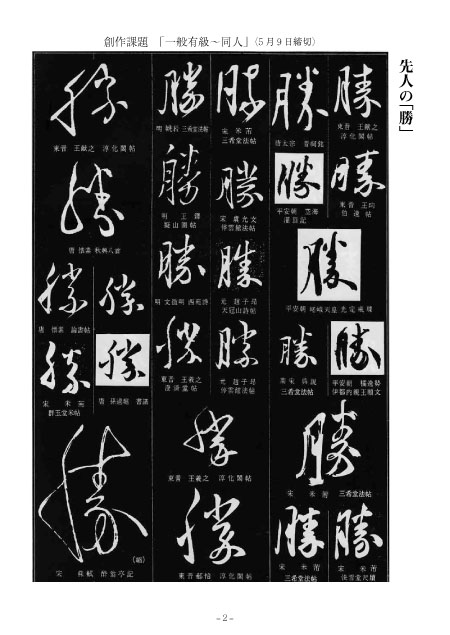 創作課題 「一般有級～同人」(5月9日締切)
先人の「勝」
勝
東晋 王献之 淳化閣帖
勝
東晋 王珣 伯遠帖
勝
唐太宗 晋祠銘
勝
平安朝 空海 灌頂記
勝
平安朝 嵯峨天皇 光定戒牒
勝
平安朝 橘逸勢
伊都内親王願文
勝
三希堂法帖
勝
宋 米芾 三希堂法帖
勝
宋 米芾
三希堂法帖
勝
宋 米芾
勝
宋 米芾
三希堂法帖
勝
三希堂法帖
勝
宋 虞允文
停雲館法帖
勝
明 王鐸
擬山園帖
勝
元 趙子昂
天冠山詩帖
勝
明 文徴明 西苑詩
勝
元 趙子昂
停雲館法帖
勝
東晋 王羲之
澄清堂帖
勝
東晋 王羲之 淳化閣帖
勝
東晋 郗愔 淳化閣帖
勝
東晋 王献之 淳化閣帖
勝
唐 懐素 秋興八首
勝
唐 懐素 論書帖
勝
唐 孫過庭 書譜
勝
宋 米芾
群玉堂米帖
勝
(縮)
宋 蘇軾 酔翁亭記
－2－